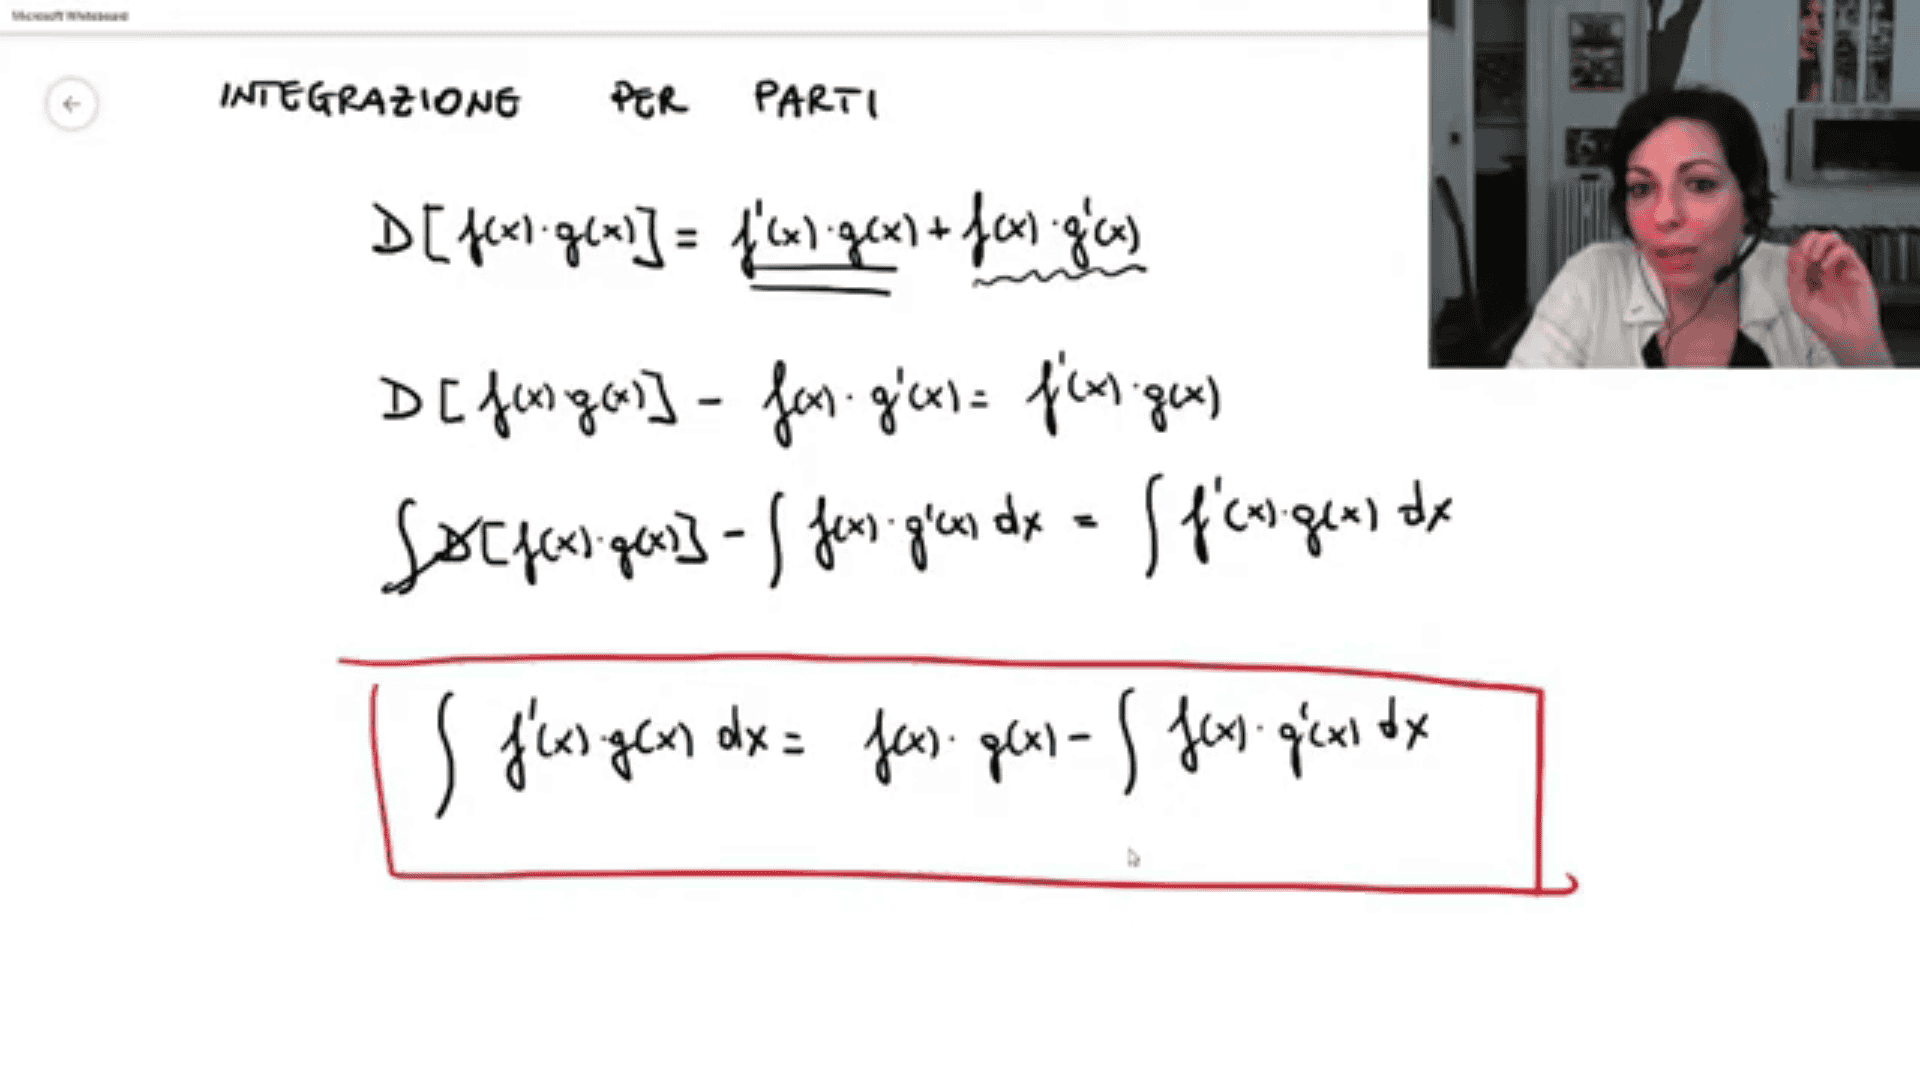 Microsoft Whiteboard
INTEGRAZIONE PER PARTI
D[f(x)·g(x)] = f'(x)·g(x) + f(x)·g'(x)
D[f(x)·g(x)] - f(x)·g'(x) = f'(x)·g(x)
∫D[f(x)·g(x)] - ∫f(x)·g'(x) dx = ∫f'(x)·g(x) dx
∫f'(x)·g(x) dx = f(x)·g(x) - ∫f(x)·g'(x) dx